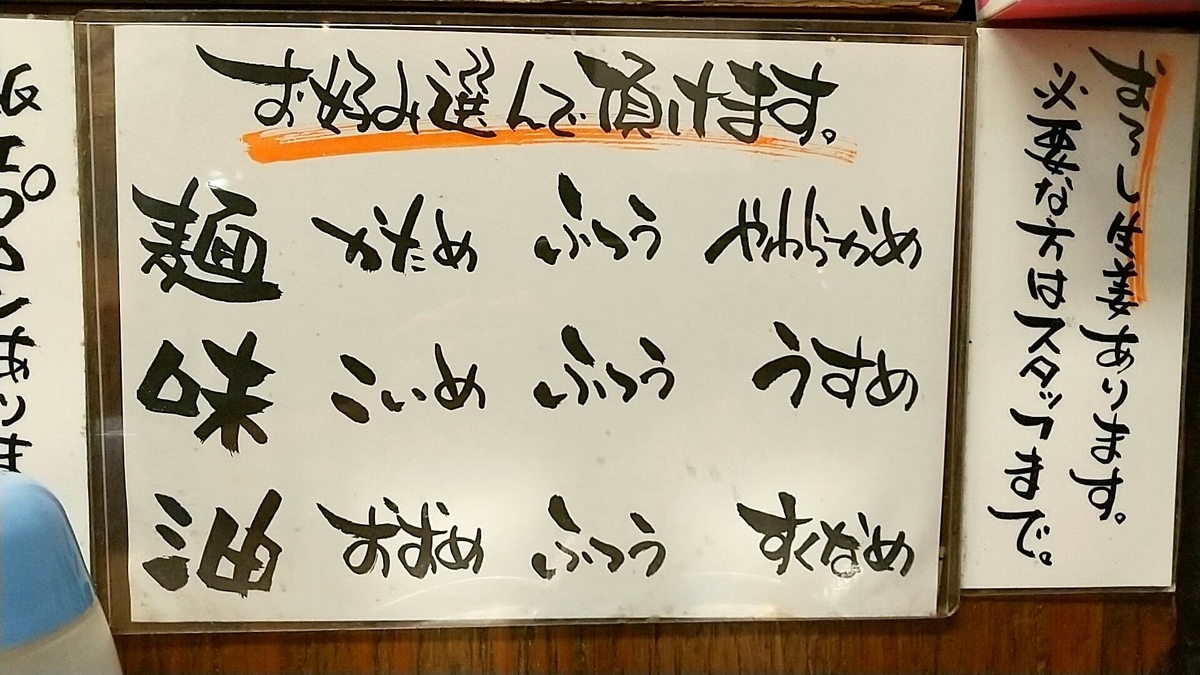 お好み選んで頂けます。
麺 かため ふつう やわらかめ
味 こいめ ふつう うすめ
油 おおめ ふつう すくなめ
おろし生姜あります。
必要な方はスタッフまで。
紙エプロンありま